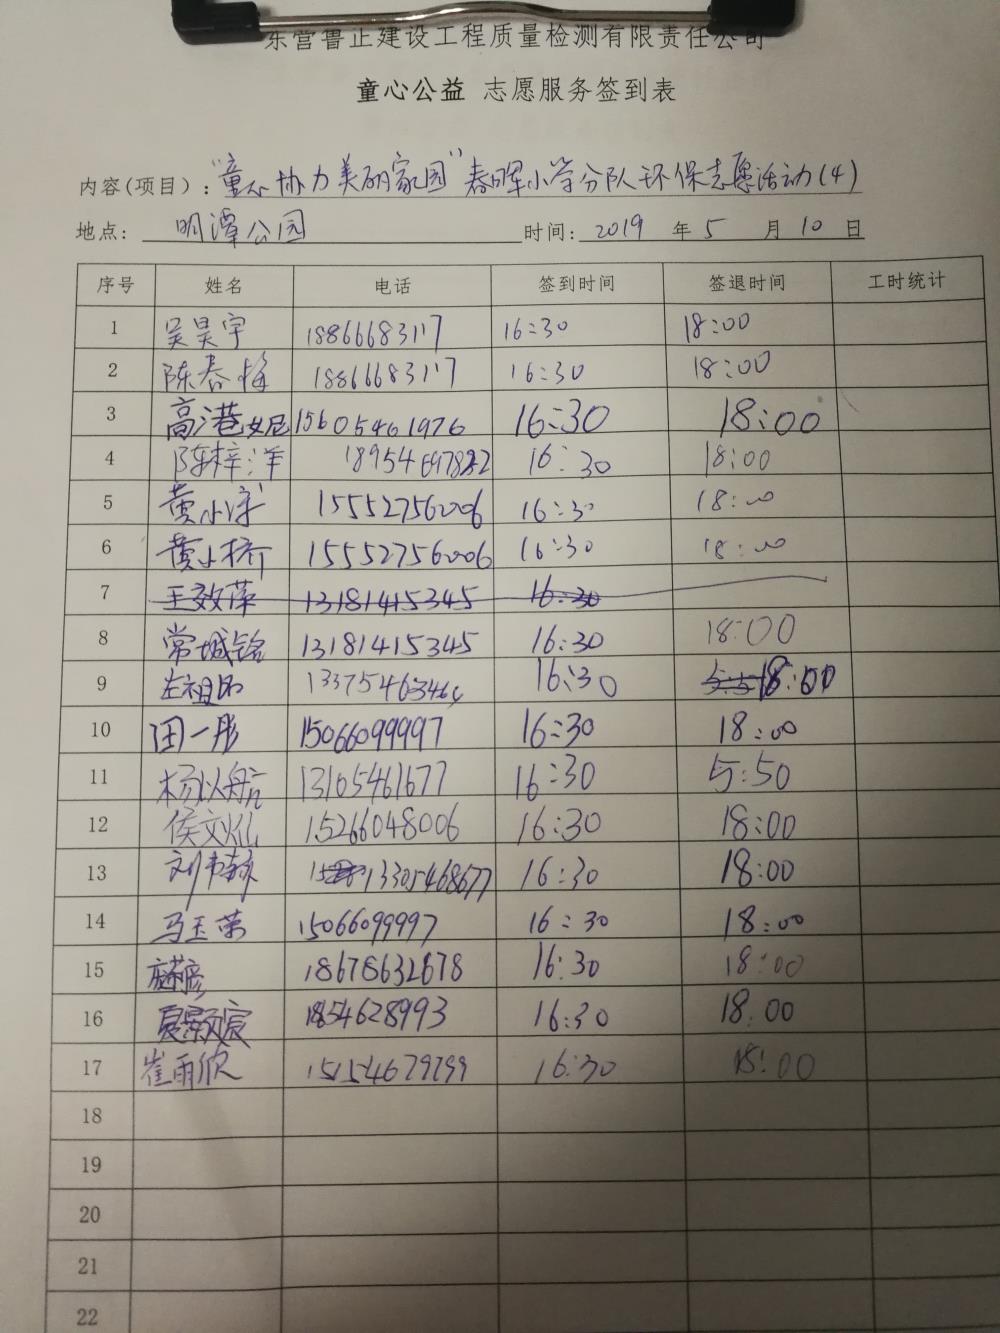 东营鲁正建设工程质量检测有限责任公司
童心公益 志愿服务签到表
内容(项目)："童心协力美丽家园"春晖小学分队环保志愿活动(4)
地点： 明潭公园 时间： 2019 年 5 月 10 日
序号 姓名 电话 签到时间 签退时间 工时统计
1 吴昊宇 18866683117 16:30 18:00
2 陈春梅 18866683117 16:30 18:00
3 高港 15605461976 16:30 18:00
4 陈梓洋 16:30 18:00
5 黄小 15552756006 16:30 18:00
6 黄小桥 15552756006 16:30 18:00
7 王效萍 13181415345 16:30
8 常城铭 13181415345 16:30 18:00
9 左祖 16:30 18:00
10 田一彤 15066099997 16:30 18:00
11 杨以航 13105461677 16:30 5:50
12 侯文 15266048006 16:30 18:00
13 刘 13305468677 16:30 18:00
14 马玉荣 15066099997 16:30 18:00
15 18678632678 16:30 18:00
16 1854628993 16:30 18.00
17 崔雨欣 16:30 18:00
18
19
20
21
22